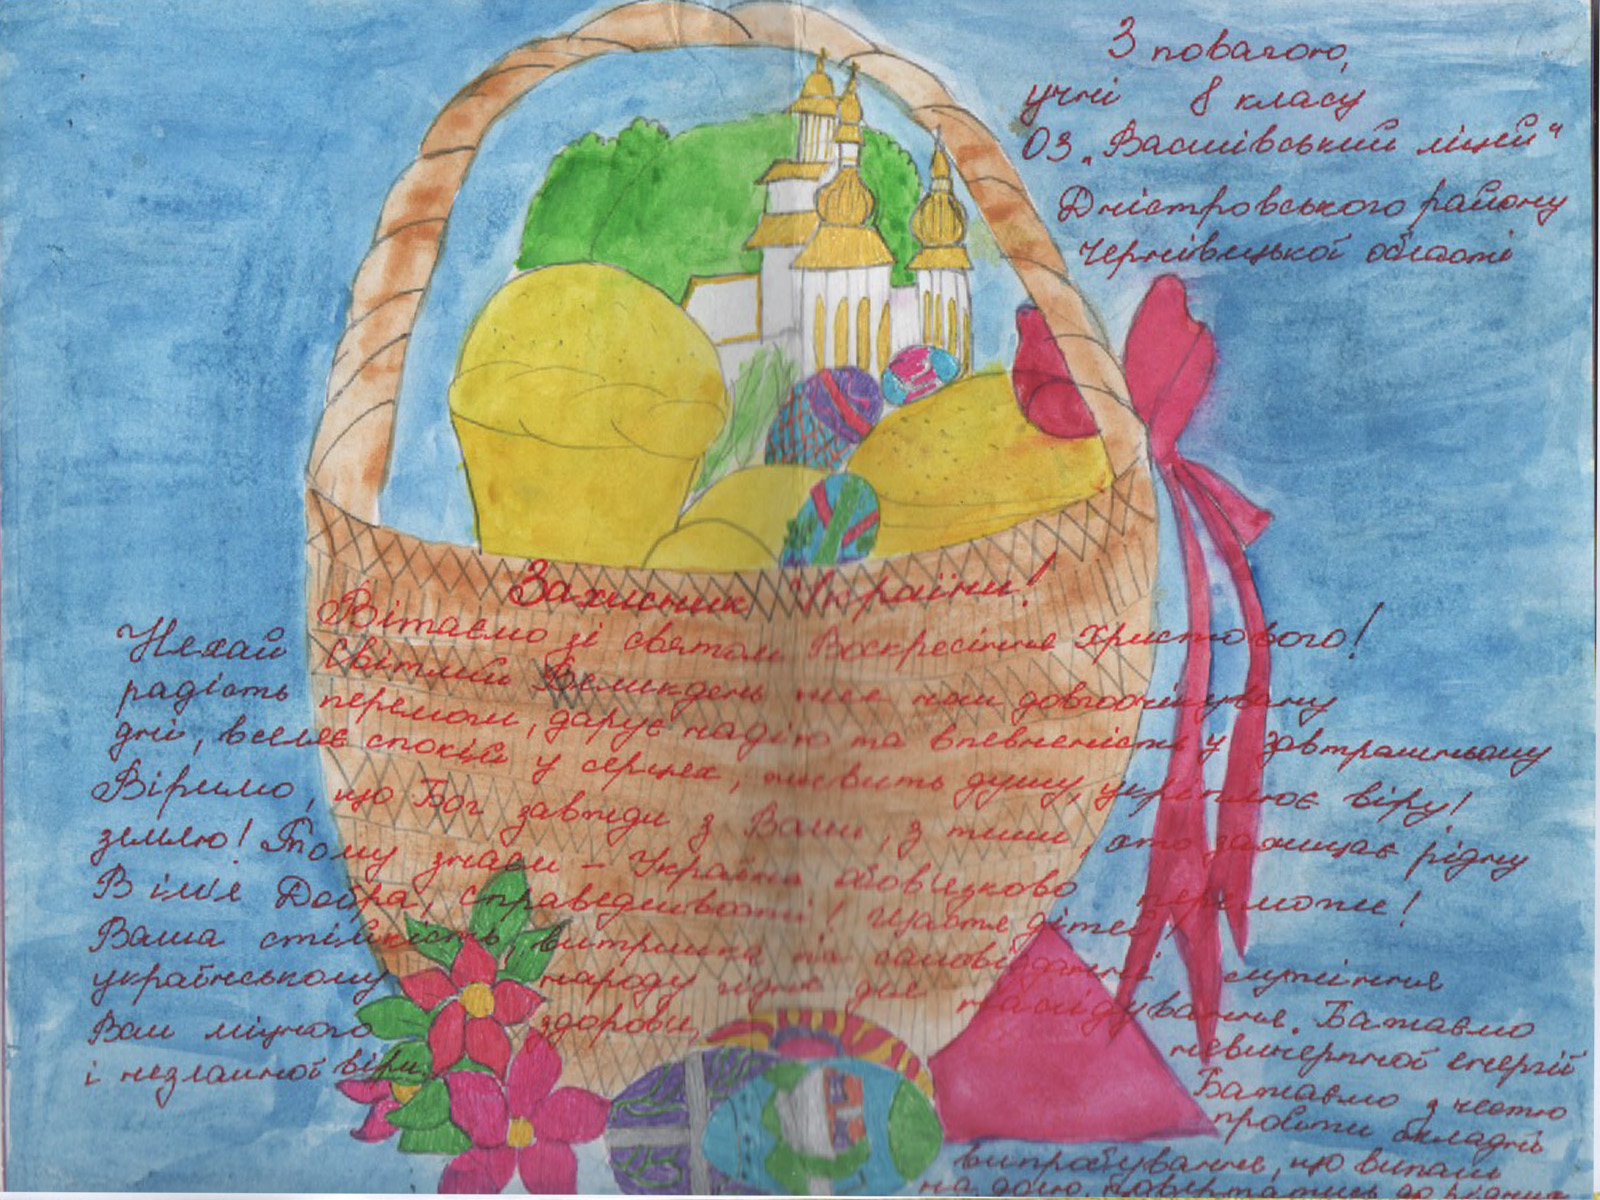 З повагою,
учні 8 класу
ОЗ „Василівський ліцей“
Дністровського району
Чернівецької області
Захисник України!
Вітаємо зі святом Воскресіння Христового!
Нехай Світлий Великдень несе нам довгоочікувану
радість перемоги, дарує надію та впевненість у завтрашньому
дні, вселяє спокій у серцях, живить душу, укріплює віру!
Віримо, що Бог завжди з Вами, з тими, хто захищає рідну
землю! Тому знаєм – Україна обов'язково переможе!
В ім'я Добра, справедливості! Щастя дітей!
Ваша стійкість, витримка та самовіддане служіння
українському народу гідне для наслідування. Бажаємо
Вам міцного здоров'я, невичерпної енергії
і незламної віри.
Бажаємо з честю
пройти складні
випробування, що випали
на долю, повертатись до